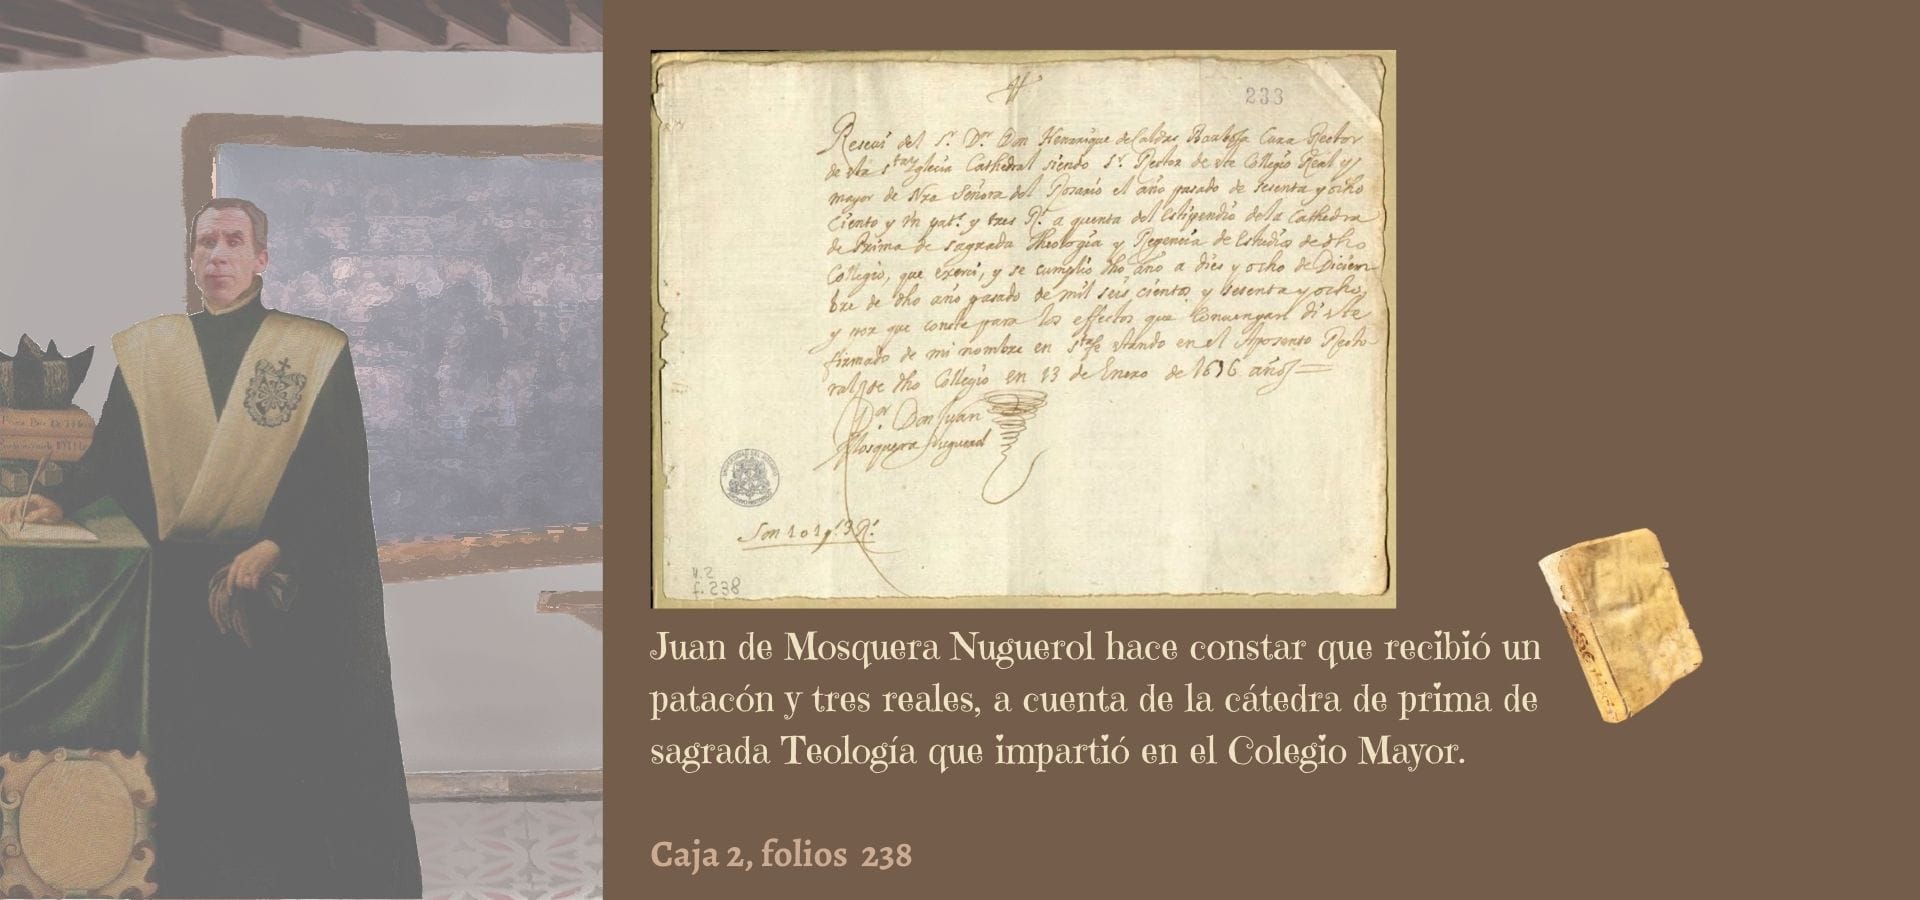 233
Reseui del S.r D.r Don Henrrique de Caldas Barbosa Cura Rector
de sta S.ta Yglecia Cathedral siendo S.r Rector de ste Collegio Real y
mayor de Nra Señora del Rosario el año pasado de sesenta y ocho
Ciento y Vn pat.s y tres R.s a quenta del Estipendio de la Cathedra
de Prima de sagrada Theologia y Regencia de Estudios de dho
Collegio, que exerci, y se cumplio dho año a dies y ocho de Diciem-
bre de dho año pasado de mil seis cientos y sesenta y ocho,
y por que conste para los effectos que Convengan di ste
firmado de mi nombre en S.ta fe stando en el Aposento Recto
ral de dho Collegio en 13 de Enero de años
D.or Don Juan
Mosquera Nuguerol
Son 101 p.s 3 R.s
v.2
f. 238
Juan de Mosquera Nuguerol hace constar que recibió un
patacón y tres reales, a cuenta de la cátedra de prima de
sagrada Teología que impartió en el Colegio Mayor.
Caja 2, folios 238